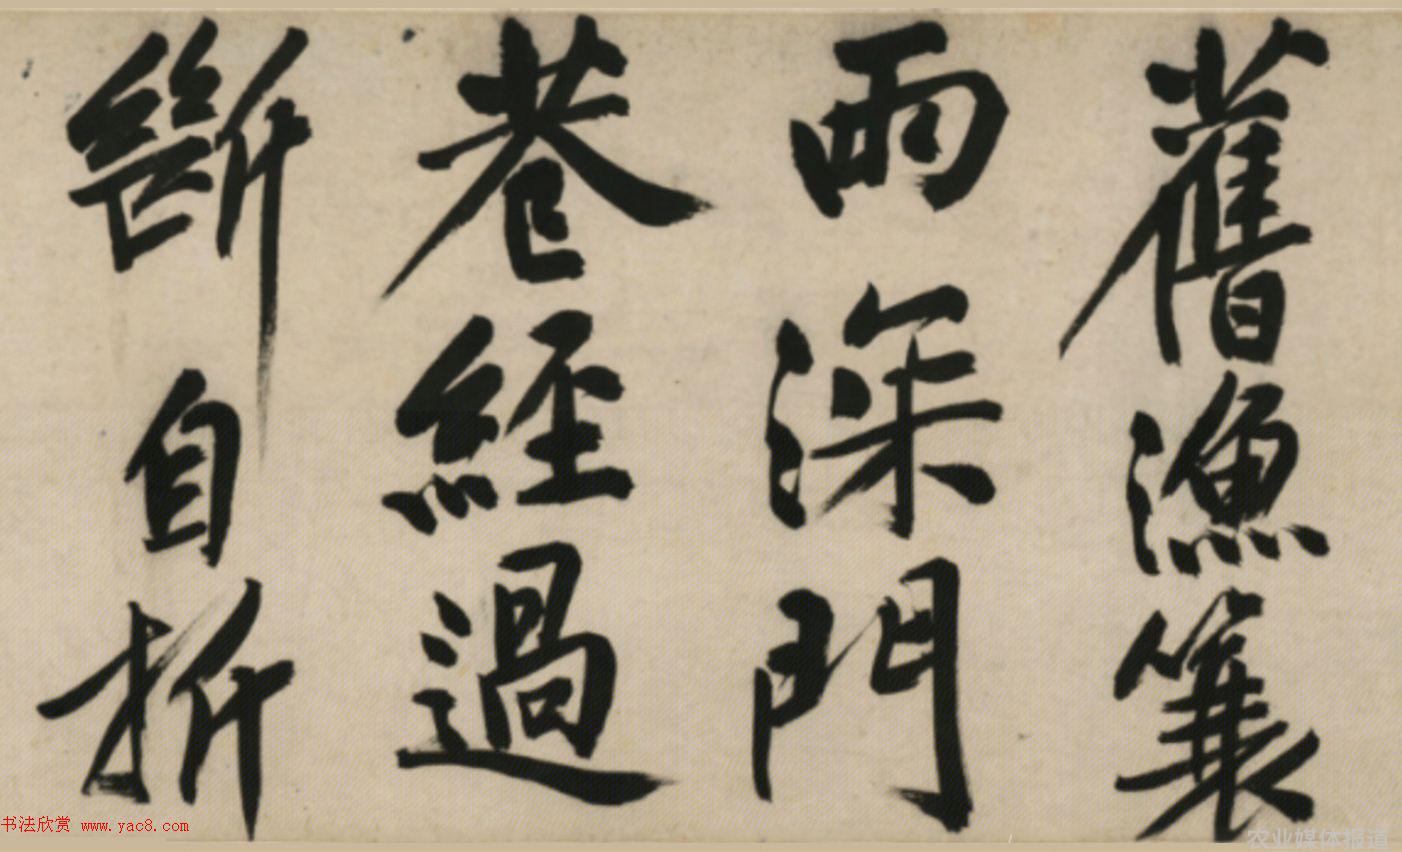 舊漁簑
雨深門
巷經過
斷自折
书法欣赏 www.yac8.com
农业媒体报道